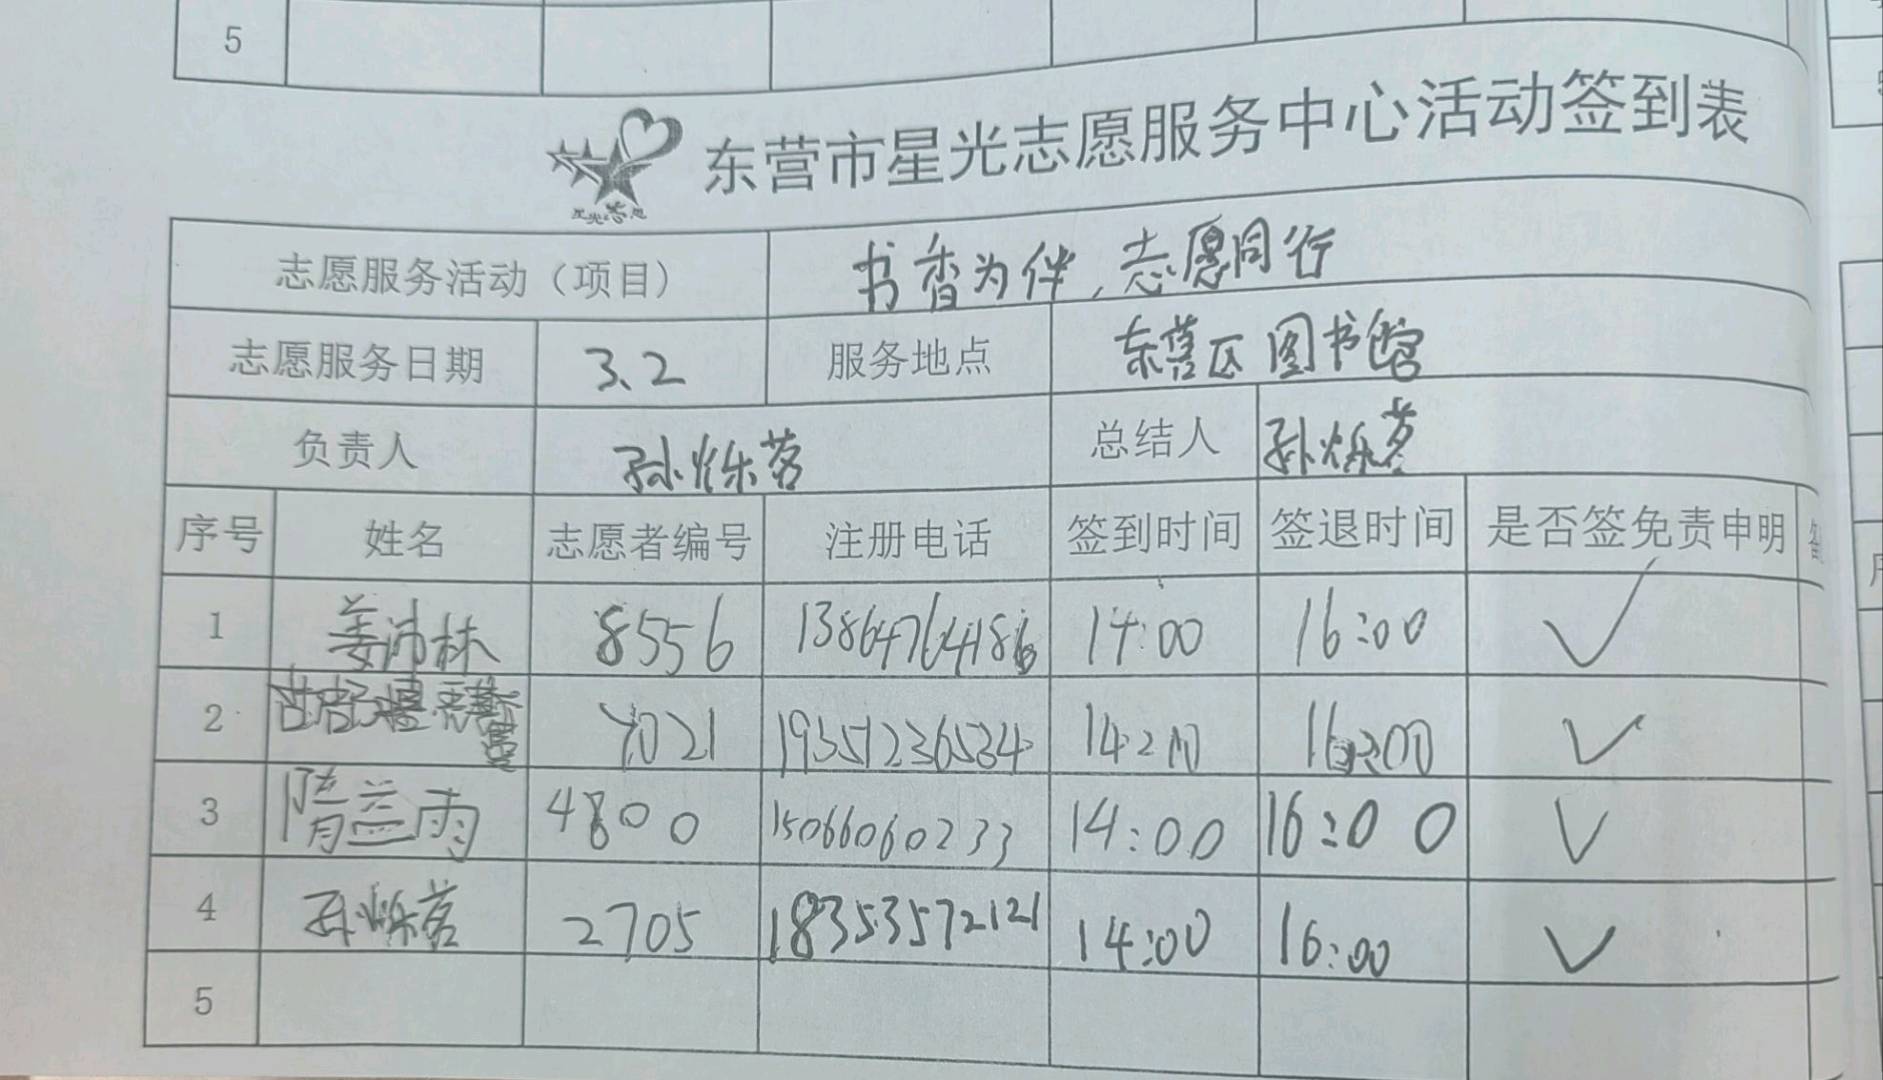 5
东营市星光志愿服务中心活动签到表
星光志愿
志愿服务活动（项目） 书香为伴，志愿同行
志愿服务日期 3.2 服务地点 东营区图书馆
负责人 孙烁茗 总结人 孙烁茗
序号 姓名 志愿者编号 注册电话 签到时间 签退时间 是否签免责申明
1 姜沛林 8556 13864764186 14:00 16:00 ✓
2 7021 19351236534 14:00 16:00 ✓
3 隋益雨 4800 15066060233 14:00 16:00 ✓
4 孙烁茗 2705 18353572121 14:00 16:00 ✓
5